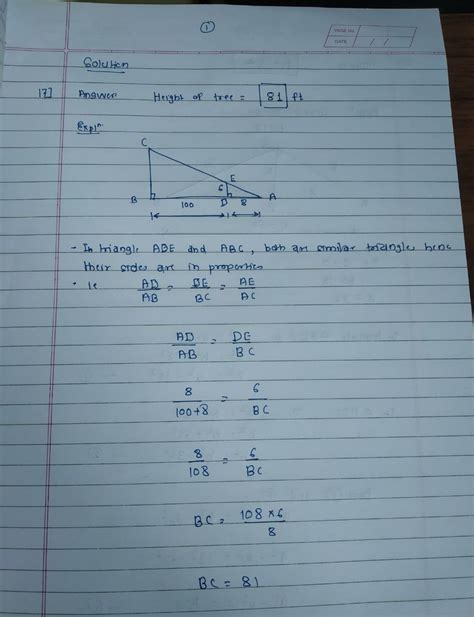 1
PAGE NO.
DATE / /
Solution
17] Answer Height of tree = 81 ft
Expln
C
E
6
B 100 D 8 A
- In triangle ADE and ABC, both are similar triangle hens
their sides are in properties
• ie AD/AB = DE/BC = AE/AC
AD/AB = DE/BC
8/100+8 = 6/BC
8/108 = 6/BC
BC = 108 × 6/8
BC = 81